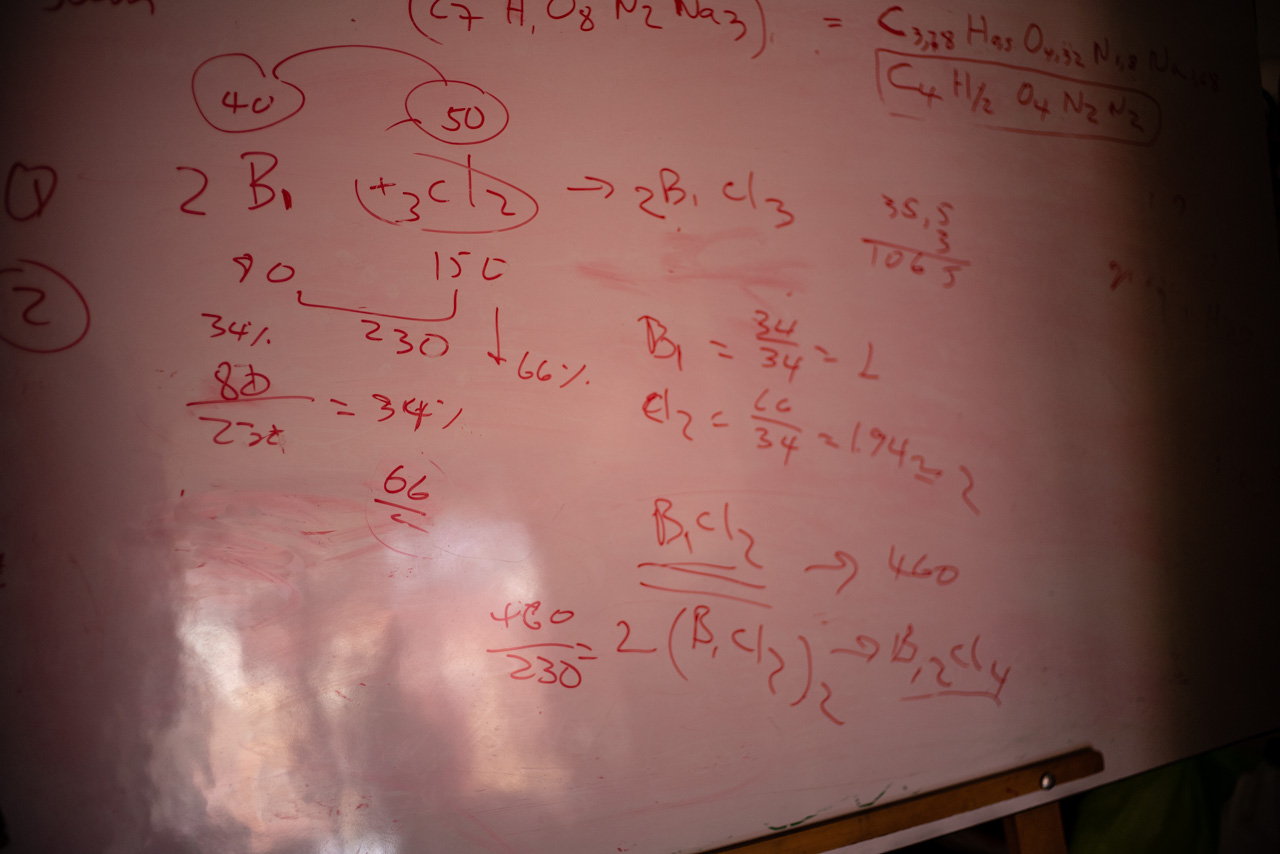 (C7 H, O8 N2 Na3) = C3,78 H95 O4,32 N1,8
C4 H12 O4 N2 N2
40 50
1 2 B1 + 3Cl2 → 2B1 Cl3
35,5
3
1065
80 150
2
34% 230 66%
B1 = 34/34 = 1
80/230 = 34%
Cl2 = 66/34 = 1.94 ≃ 2
66
B1Cl2 → 460
460/230 = 2 (B1Cl2)2 → B12Cl4